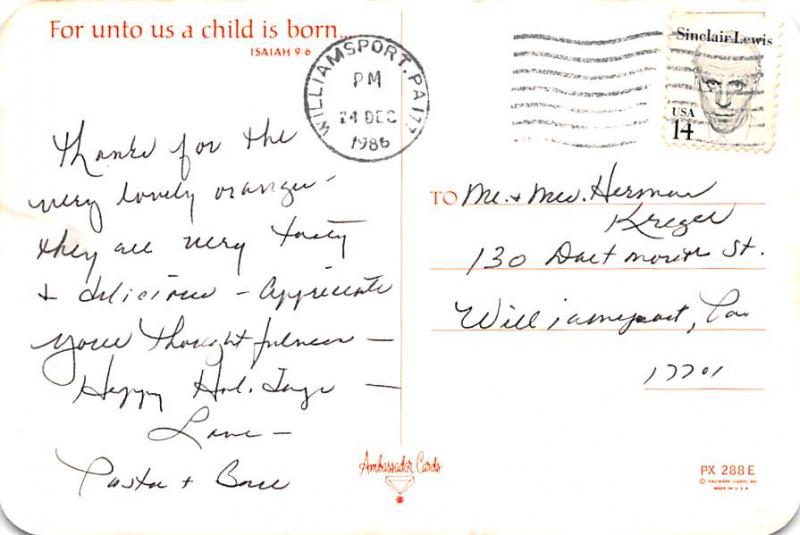 For unto us a child is born...
ISAIAH 9:6
WILLIAMSPORT, PA 177
PM
24 DEC
1986
Sinclair Lewis
USA
14
Thanks for the
very lovely oranges -
they are very tasty
& delicious - Appreciate
your thoughtfulness -
Happy Holidays -
Love -
&
TO Mr. & Mrs. Herman
Kreger
130 Dartmouth St.
Williamsport, Pa
17701
Ambassador Cards
PX 288 E
© HALLMARK CARDS, INC.
MADE IN U.S.A.